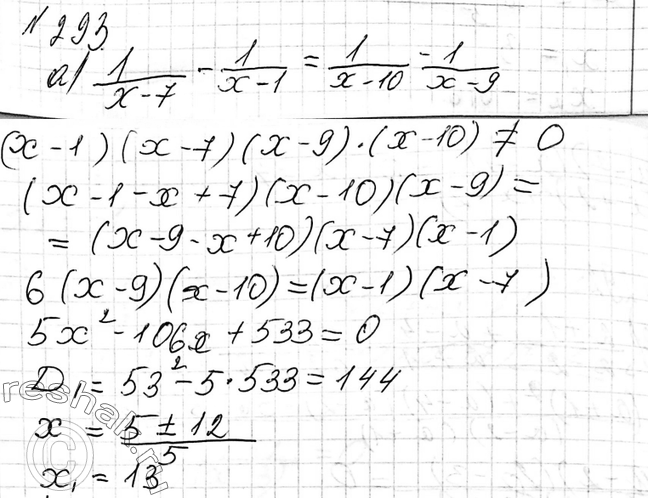 №293
а) 1/(x-7) - 1/(x-1) = 1/(x-10) - 1/(x-9)
(x-1)(x-7)(x-9)·(x-10)≠0
(x-1-x+7)(x-10)(x-9)=
=(x-9-x+10)(x-7)(x-1)
6(x-9)(x-10)=(x-1)(x-7)
5x²-106x+533=0
D₁=53²-5·533=144
x = (5±12)/5
x₁=13
reshak.ru